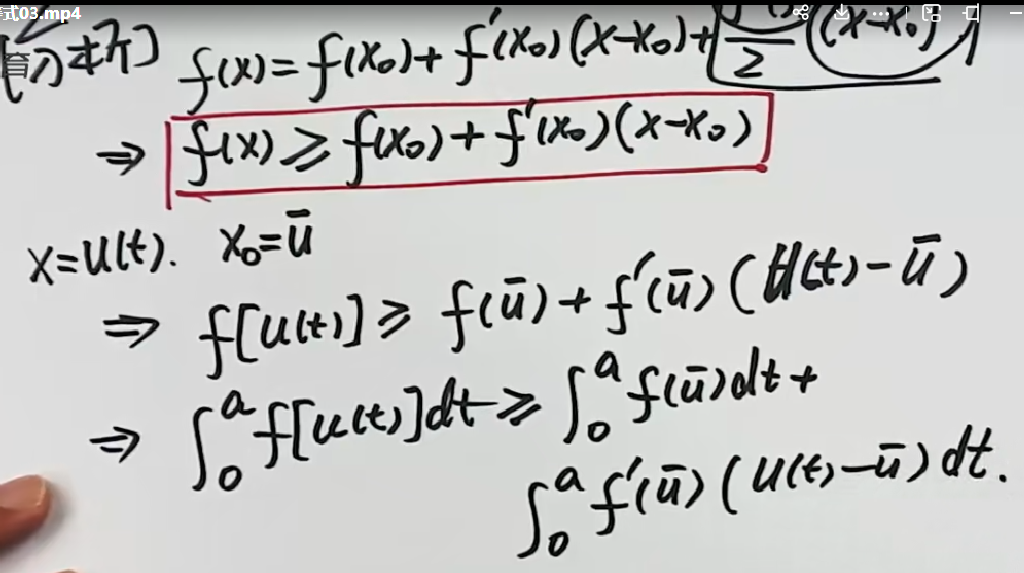 式03.mp4
[分析] f(x)=f(x₀)+f'(x₀)(x-x₀)+ 2 (x-x₀)
育
⇒ f(x)≥f(x₀)+f'(x₀)(x-x₀)
x=u(t). x₀=ū
⇒ f[u(t)]≥f(ū)+f'(ū)(u(t)-ū)
⇒ ∫₀ᵃf[u(t)]dt≥∫₀ᵃf(ū)dt+
∫₀ᵃf'(ū)(u(t)-ū)dt.